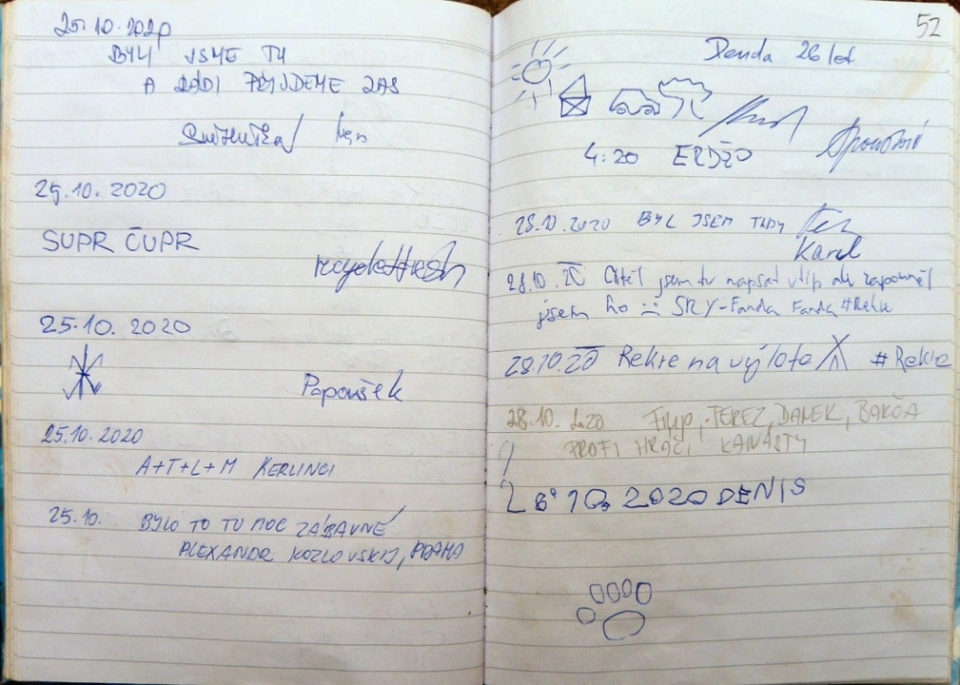 25.10.2020
BYLI JSME TU
A RÁDI PŘIJDEME ZAS
25.10.2020
SUPR ČUPR
25.10.2020
Papoušek
25.10.2020
A+T+L+M KERLINCI
25.10. BYLO TO TU MOC ZÁBAVNÉ
ALEXANDR KOZLOVSKIJ, PRAHA
52
Denda 26 let
4:20 ERDŽO
28.10.2020 BYL JSEM TADY
Karel
28.10.20 Chtěl jsem tu napsat vtip ale zapomněl
jsem ho :( SRY-Fanda Fanda #Rekre
28.10.20 Rekre na výletě #Rekre
28.10.2020 Filip, TEREZ, DANEK, BAKČA
PROFI HRÁČI KANASTY
28.10.2020 DENIS